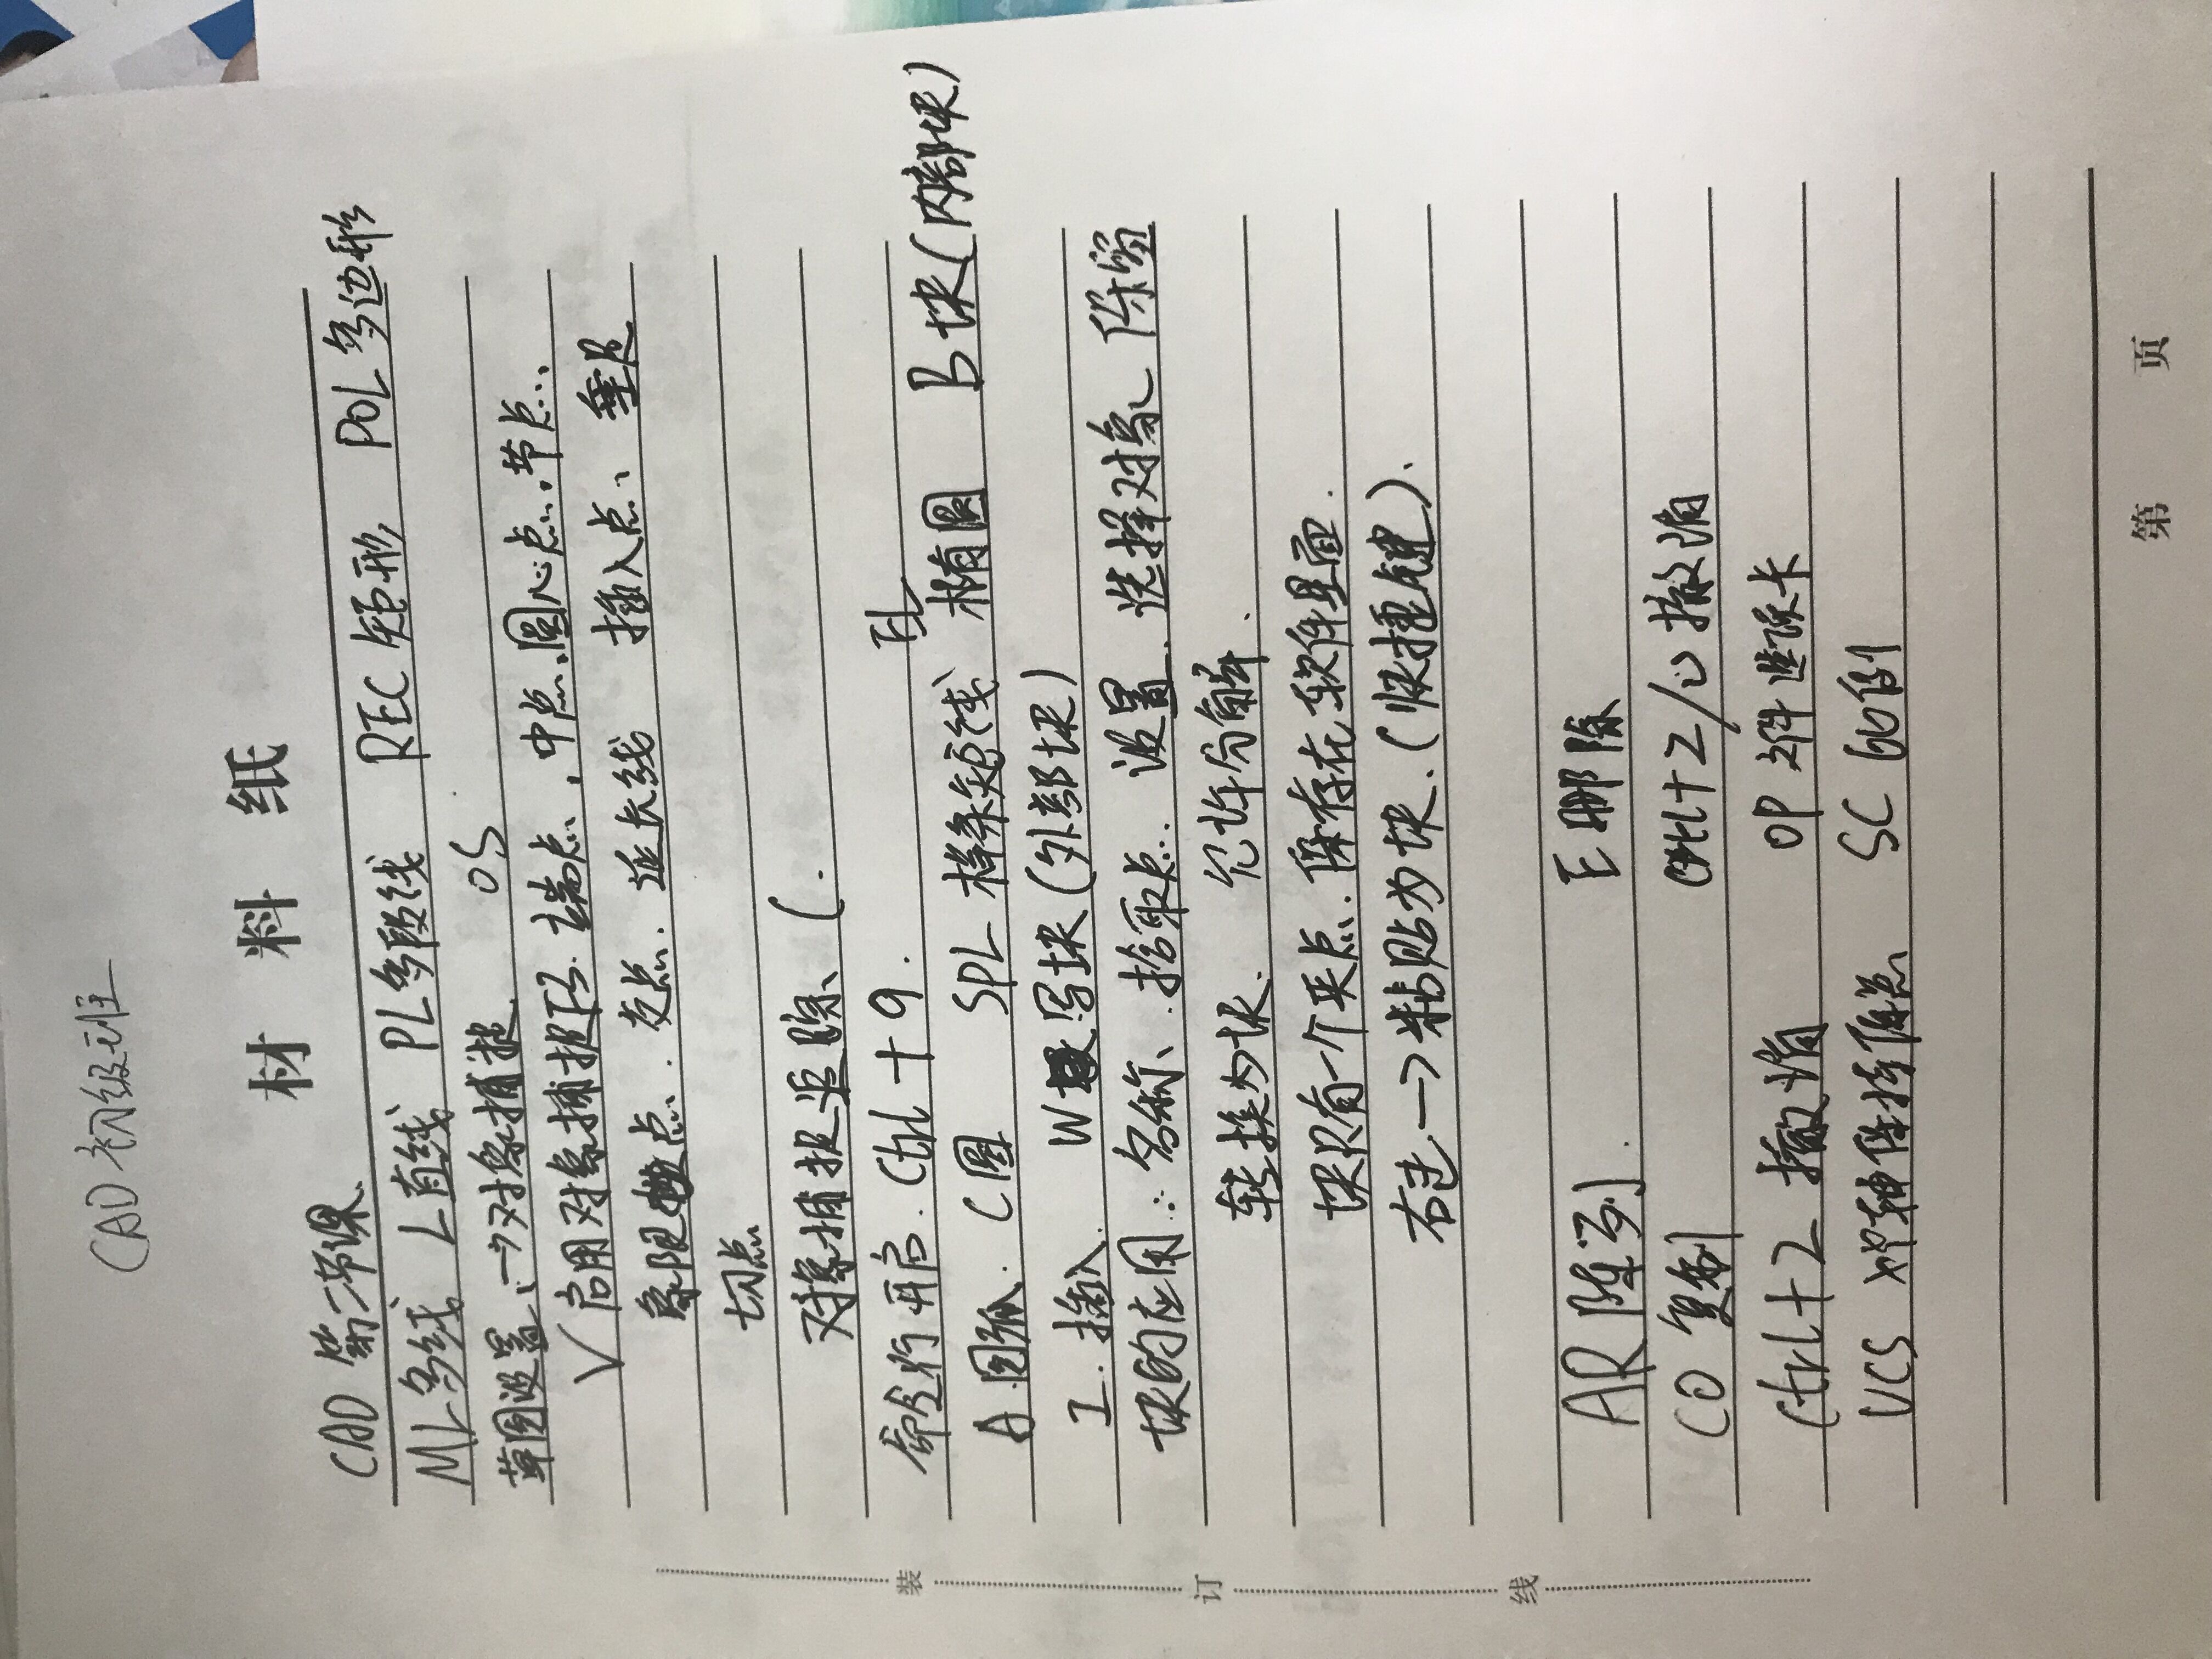 CAD初级班
材料纸
CAD 第二节课.
ML多线 L直线 PL多段线 REC矩形 POL多边形
草图设置.→对象捕捉. OS
√启用对象捕捉F3. 端点、中点、圆心点、节点、
象限点. 交点. 延长线 插入点、垂足
切点
对象捕捉追踪、(.
命令行开启. Ctrl+9.
A圆弧. C圆 SPL样条短线 EL椭圆 B块(内部块)
I.插入. W写块(外部块)
块的应用:名称、拾取点. 设置. 选择对象、保留
转换为块. 允许分解.
块只有一个夹点.保存在软件里面.
右边→粘贴为块.(快捷键).
AR阵列. E删除
CO复制 Ctrl+Z/U撤消
Ctrl+Z 撤消 OP 文件选项卡
UCS 对神作指南总 SC比例
装订线
第 页